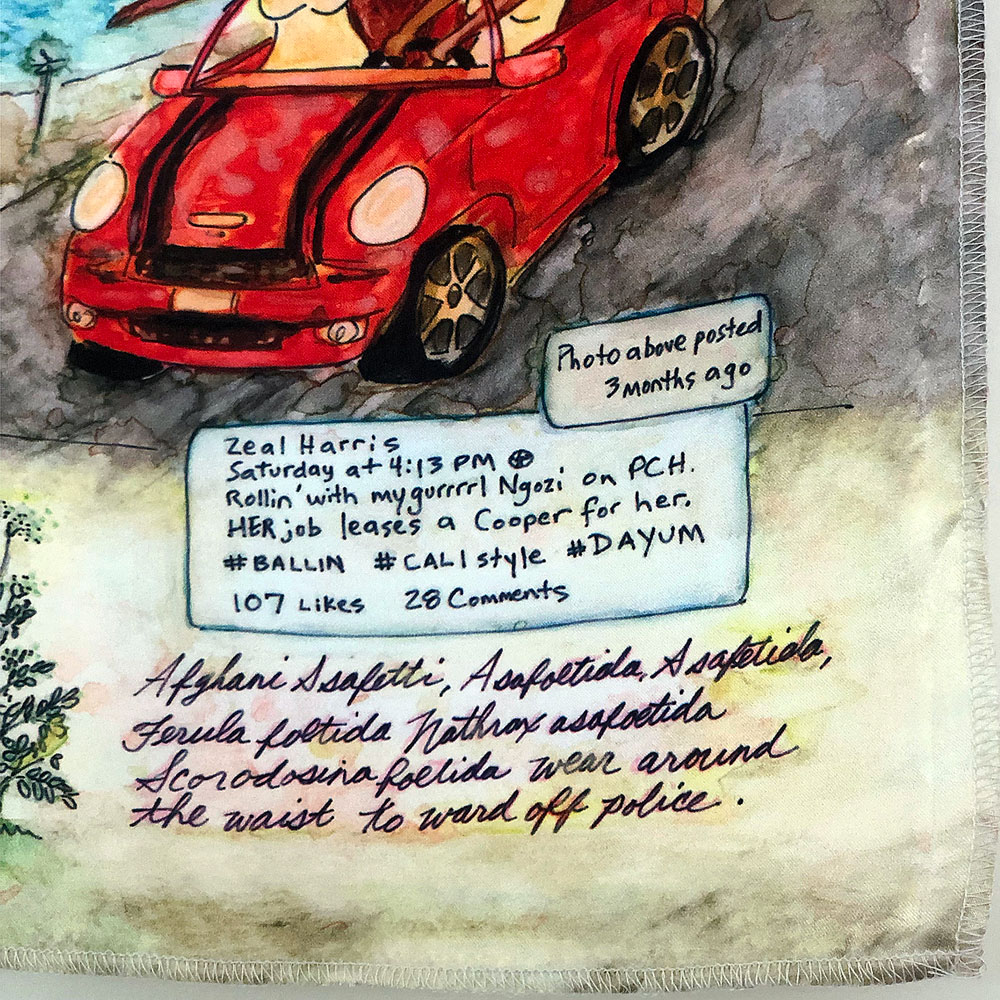 Photo above posted
3 months ago
Zeal Harris
Saturday at 4:13 PM
Rollin' with my gurrrrl Ngozi on PCH.
HER job leases a Cooper for her.
#BALLIN #CALIstyle #DAYUM
107 Likes 28 Comments
Afghani Asafetti, Asafoetida, Asafetida,
Ferula foetida Nathrax asafoetida
Scorodosina foetida wear around
the waist to ward off police.